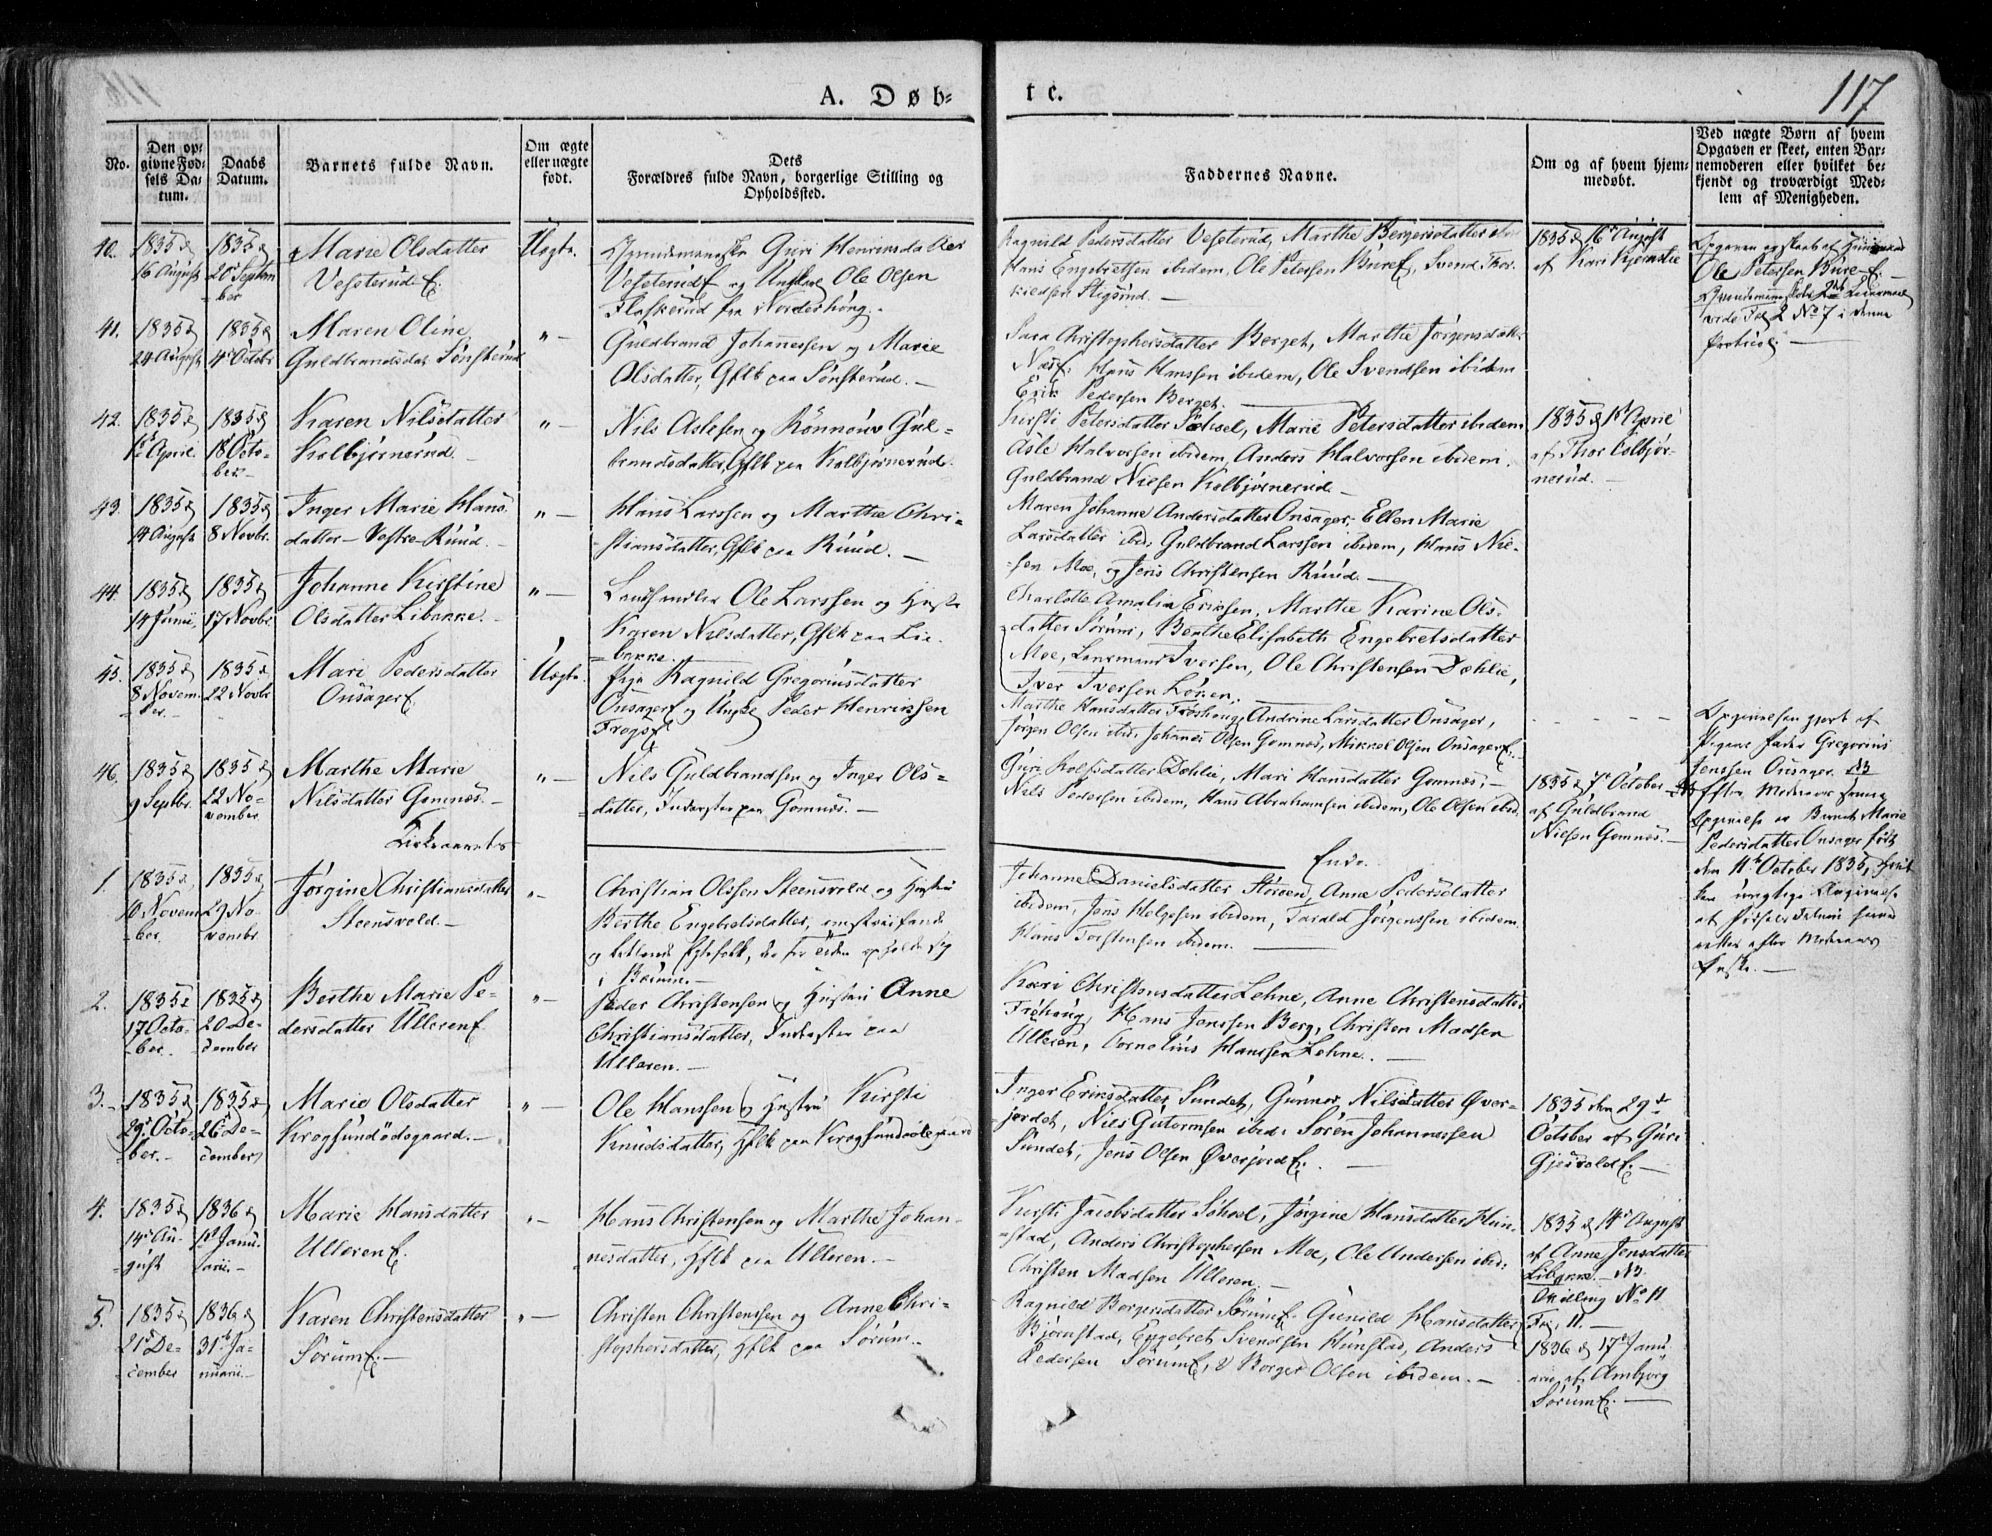 117
A. Døb-
te.
No.
Den op-
givne Fød-
sels Da-
tum.
Daabs
Datum.
Barnets fulde Navn.
Om ægte
eller uægte
født.
Dets
Forældres fulde Navn, borgerlige Stilling og
Opholdssted.
Faddernes Navne.
Om og af hvem hjem-
medøbt.
Ved uægte Børn af hvem
Opgaven er skeet, enten Bar-
nemoderen eller hvilket be-
kjendt og troværdigt Med-
lem af Menigheden.
40.
1835 d
16 August
1835 d
20 Septem
ber
Marie Olsdatter
Veseterud E.
Uægte.
Guri Henriksdatter
Veseterud E og Ungkarl Ole Olsen
Flaskerud fra Norderhoug.
Ragnild Pedersdatter Veseterud, Marthe Bergersdatter
Hans Engebretsen ibidem, Ole Petersen Bure E, Svend Thor-
kildsen Stigsrud.
1835 d 16 August
af Kari
Ole Petersen Bure E.
No 7 i denne
Protocol
41.
1835 d
24 August
1835 d
4 Octobr
Maren Oline
Guldbrandsdat Sønsterud
" —
Guldbrand Johannessen og Marie
Olsdatter, Gflk paa Sønsterud. —
Sara Christophersdatter Berget, Marthe Jørgensdatter
Næs E. Hans Hanssen ibidem, Ole Svendsen ibidem
Erik Pedersen Berget.
42.
1835 d
1 April
1835 d
18 Octo-
ber
Karen Nilsdatter
Kolbjørnerud. —
" —
Nils Aslesen og Rønnouv Gul-
brandsdatter, Gflk paa Kolbjørnerud.
Kirsti Petersdatter Søhoel, Marie Petersdatter ibidem
Asle Halvorsen ibidem, Anders Halvorsen ibidem.
Guldbrand Nielsen Kolbjørnerud. —
1835 d 1 April
af Thor Colbjør-
nerud. —
43
1835 d
14 August
1835 d
8 Novbr.
Inger Marie Hans
datter — Vestre Ruud. —
" —
Hans Larssen og Marthe Chri-
stiansdatter, Gflk paa Ruud. —
Maren Johanne Andersdatter Onsager, Ellen Marie
Larsdatter ibid, Guldbrand Larssen ibidem, Hans Nil-
sen Moe, og Jens Christensen Ruud. —
44.
1835 d
14 Junii,
1835 d
17 Novbr.
Johanne Kirstine
Olsdatter Libakke. —
" —
Landhandler Ole Larssen og Hustru
Karen Nilsdatter, Gflk paa Li-
bakke.
Charlotte Amalia Eriksen, Marthe Karine Ols-
datter Sørum, Berthe Elisabeth Engebretsdatter
Moe, Lensmand Iversen, Ole Christensen Dæhlie,
Iver Iversen Løken.
45.
1835 d
8 Novem-
ber. —
1835 d
22 Novbr
Mari Pedersdatter
Onsager E.
Uægte.
Pige Ragnild Gregoriusdatter
Onsager E og Ungkl Peder Henrikssen
Frogs E.
Marthe Hansdatter Frøshoug, Andrine Larsdatter Onsager,
Jørgen Olsen ibid. Johannes Olsen Gomnæs, Mikkel Olsen Onsager E.
Opgivelsen gjort af
Pigens Fader Gregorius
Jenssen Onsager. NB
Efter Moderens
Opgivelse er Barnet Marie
Pedersdatter Onsager født
den 11 October 1835,
urigtige Angivelse
af Fødsels Datum
rettes efter Moderens
Ønske. —
46.
1835 d
9 Septbr.
1835 d
22 No-
vember
Marthe Marie
Nilsdatter Gomnæs. —
" —
Nils Guldbrandsen og Inger Ols-
datter, Inderster paa Gomnæs. —
Guri Rolfsdatter Dæhlie, Mari Hansdatter Gomnæs, —
Nils Pedersen ibidem, Hans Abrahamsen ibidem, Ole Olsen ibid.
1835 d 7 October
af Guldbrand
Nielsen Gomnæs. —
Ende.
1.
1835 d
10 Novem
ber.
1835 d
29 No-
vembr
Jørgine Christiansdatter
Steensvold. —
" —
Christian Olssen Steensvold og Hustru
Berthe Engebretsdatter, omstreifende
og betlende
i Bærum. —
Johanne Danielsdatter Støveren, Anne Pedersdatter
ibidem, Jens Helgesen ibidem, Tarald Jørgenssen ibidem
Hans Torstensen ibidem. —
2.
1835 d
17 Octo-
ber.
1835 d
20 De-
cember
Berthe Marie Pe-
dersdatter Ulleren E.
" —
Peder Christensen og Hustru Anne
Christiansdatter, Inderster paa
Ulleren. —
Kari Christensdatter Lehne, Anne Christensdatter
Frøhoug, Hans Jenssen Berg, Christen Madsen
Ulleren, Cornelius Hanssen Lehne. —
3. —
1835 d
29 Octo-
ber. —
1835 d
26 De-
cember
Marie Olsdatter
Krogsundødegaard. —
" —
Ole Hanssen og Hustru Kirsti
Knudsdatter, Gflk paa Krogsundødegaard
Inger Eriksdatter Sundet, Gunnor Nilsdatter Øver-
jordet, Niels Gutormsen ibid: Søren Johannessen
Sundet, Jens Olsen Øverjord E. —
1835 den 29 d
October af Guri
Gjesvold E. —
4.
1835 d
14 Au-
gust
1836 d
1 Janu-
arii. —
Marie Hansdatter
Ulleren E.
" —
Hans Christensen og Marthe Johan-
nesdatter, Gflk paa Ulleren. —
Kirsti Jacobsdatter Søhoel, Jørgine Hansdatter Hun-
stad, Anders Christophersen Moe, Ole Andersen ibid:
Christen Madsen Ulleren. —
1835 d 14 August
af Anne Jensdatter
Libakke. — NB.
No 11
Fog. 11. —
5.
1835 d
21 De-
cember
1836 d
31 Ja-
nuarii —
Karen Christensdatter
Sørum E. —
" —
Christen Christenssen og Anne Chri-
stophersdatter, Gflk paa Sørum. —
Ragnild Borgersdatter Sørum E. Gunild Hansdatter
Bjørnstad, Engebret Svendsen Hunstad, Anders
Pedersen Sørum E, & Borger Olsen ibidem. —
1836 d 17 Janu-
arii af Ambjørg
Sørum E. —